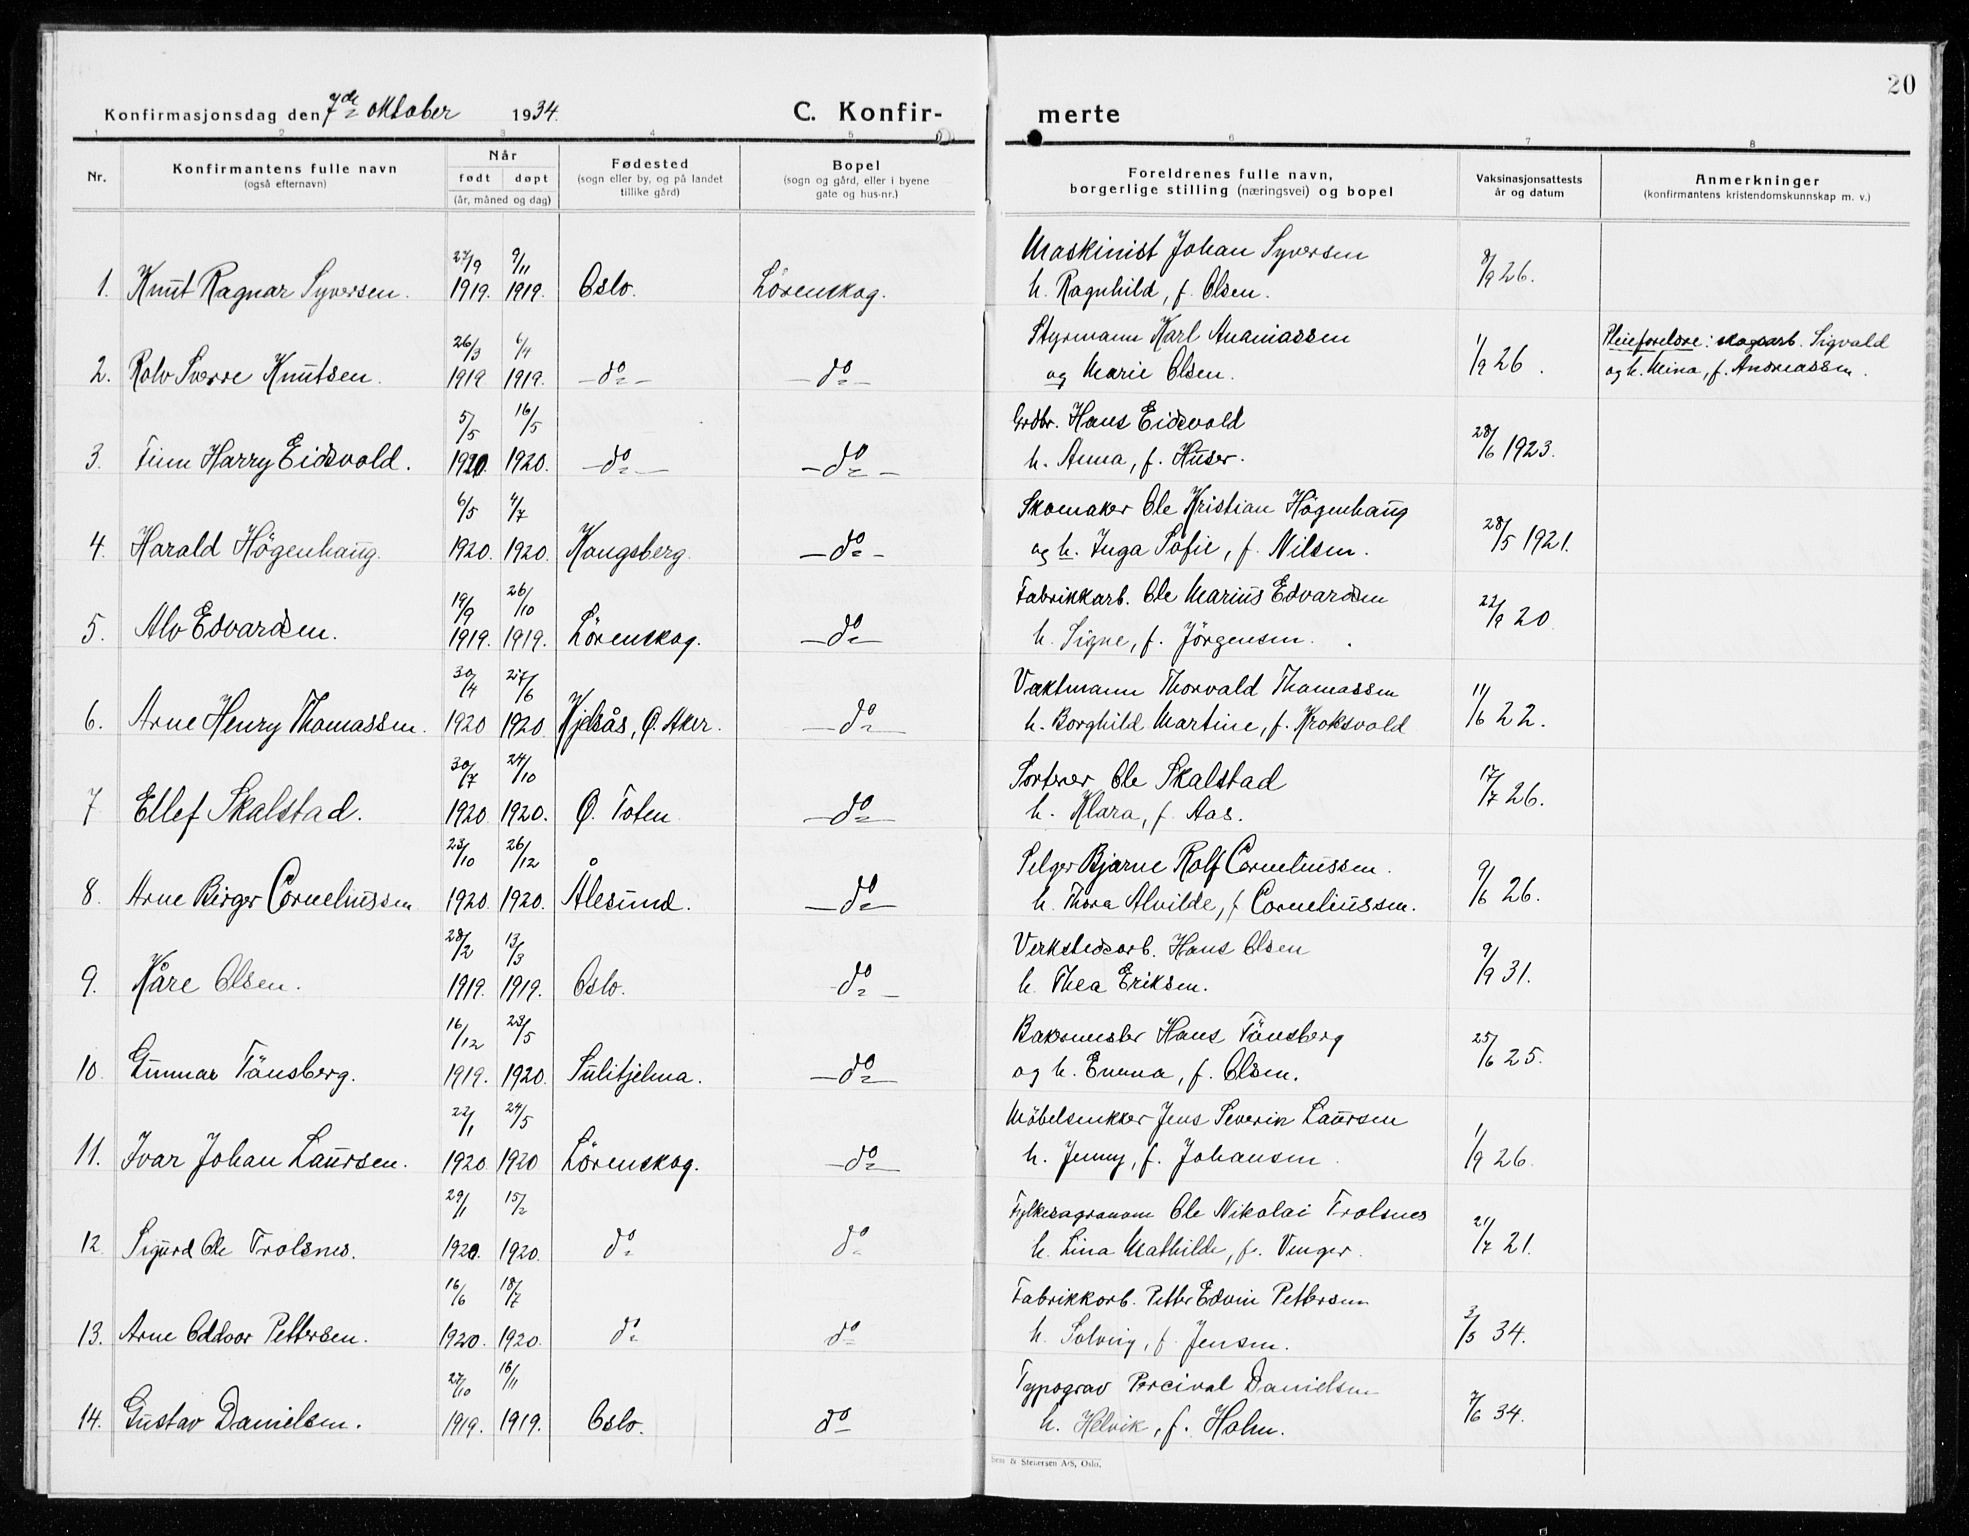 20
Konfirmasjonsdag den 7de oktober 1934. C. Konfir- merte
1 2 3 4 5 6 7 8
Nr. Konfirmantens fulle navn (også efternavn) Når født døpt (år, måned og dag) Fødested (sogn eller by, og på landet tillike gård) Bopel (sogn og gård, eller i byene gate og hus-nr.) Foreldrenes fulle navn, borgerlige stilling (næringsvei) og bopel Vaksinasjonsattests år og datum Anmerkninger (konfirmantens kristendomskunnskap m. v.)
27/9 9/11 Maskinist Johan Syversen
1. Knut Ragnar Syversen. 1919. 1919. Oslo. Lörenskog. h. Ragnhild, f. Olsen. 8/9 26.
26/3 6/4 Styrmann Karl Ananiassen Pleieforeldre: skogsarb. Sigvald
2. Rolv Sverre Knutsen. 1919 1919. — do — — do — og Marie Olsen. 1/9 26. og h. Mina, f. Andreassen.
5/5 16/5 Grdbr. Hans Eidsvold
3. Finn Harry Eidsvold. 1920 1920. — do — — do — h. Anna, f. Huser. 28/6 1923.
6/5 4/7 Skomaker Ole Kristian Högenhaug
4. Harald Högenhaug. 1920. 1920. Kongsberg. — do — og h. Inga Sofie, f. Nilsen. 28/5 1921.
19/9 26/10 Fabrikkarb. Ole Marius Edvardsen
5. Alv Edvardsen. 1919. 1919. Lörenskog. — do — h. Signe, f. Jörgensen. 22/9 20
30/4 27/6 Vaktmann Thorvald Thomassen
6. Arne Henry Thomassen. 1920 1920 Kjelsås, Ø. Aker. — do — h. Borghild Martine, f. Kroksvold 11/6 22.
30/7 24/10 Sorterer Ole Skalstad
7 Ellef Skalstad. 1920 1920. Ø. Toten — do — h. Klara, f. Aas. 17/7 26.
23/10 26/12 Selger Bjarne Rolf Corneliussen.
8. Arne Birger Corneliussen 1920 1920. Ålesund. — do — h. Thora Alvilde, f Corneliussen. 9/6 26.
28/2 13/3 Verkstedsarb. Hans Olsen
9. Kåre Olsen. 1919. 1919. Oslo. — do — h. Thea Eriksen. 9/9 31.
16/12 23/5 Baksmester Hans Tönsberg
10. Gunnar Tönsberg. 1919. 1920. Sulitjelma. — do — og h. Emma, f. Olsen. 25/6 25.
22/1 24/5 Möbelsnekker Jens Severin Laursen
11. Ivar Johan Laursen. 1920 1920 Lörenskog. — do — h. Jenny, f. Johansen. 1/9 26.
29/1 15/2 Fylkesagronom Ole Nikolai Trolsnes
12. Sigurd Ole Trolsnes. 1920. 1920. do do h. Lina Mathilde, f. Venger. 21/7 21.
16/6 18/7 Fabrikkarb. Petter Edvin Pettersen
13. Arne Oddvar Pettersen. 1920. 1920. do do h. Solveig, f. Jensen. 3/5 34.
27/10 16/11 Typograv Percival Danielsen
14. Gustav Danielsen. 1919. 1919. Oslo. do h. Helvik, f. Holm. 7/6 34.
& Stenersen A/S, Oslo.